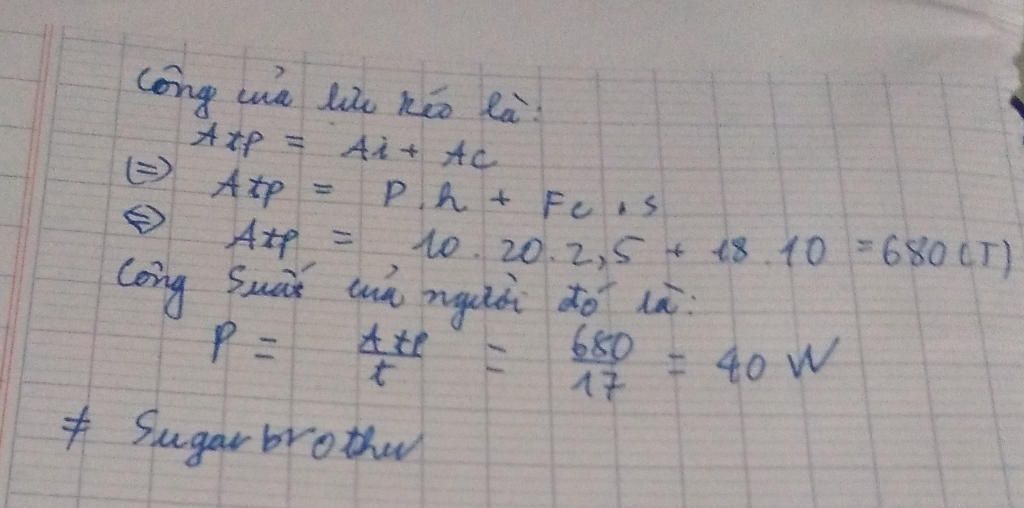 Công của lực kéo là:
Atp = Ai + Ac
(=) Atp = P.h + Fc.s
⇔ Atp = 10.20.2,5 + 18.10 = 680(J)
Công suất của người đó là:
P = Atp/t = 680/17 = 40 W
≠ Sugarbrother